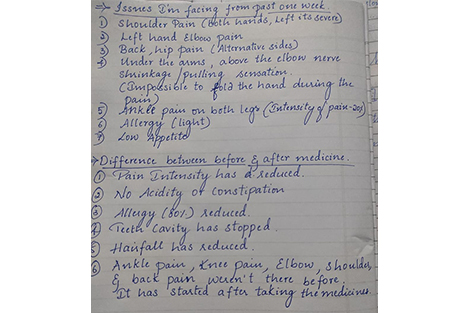 ⇒ Issues I'm facing from past one week.
① Shoulder Pain (Both hands, Left its severe)
② Left hand Elbow pain
③ Back, hip pain (Alternative sides)
④ Under the arms, above the elbow nerve
shrinkage/pulling sensation.
(Impossible to fold the hand during the
pain)
⑤ Ankle pain on both legs (Intensity of pain-20%)
⑥ Allergy (light)
⑦ Low Appetite
→ Difference between before & after medicine.
① Pain Intensity has reduced.
② No Acidity or Constipation
③ Allergy (80%) reduced.
④ Teeth Cavity has stopped
⑤ Hairfall has reduced.
⑥ Ankle pain, Knee pain, Elbow, shoulder,
& back pain weren't there before.
It has started after taking the medicines.